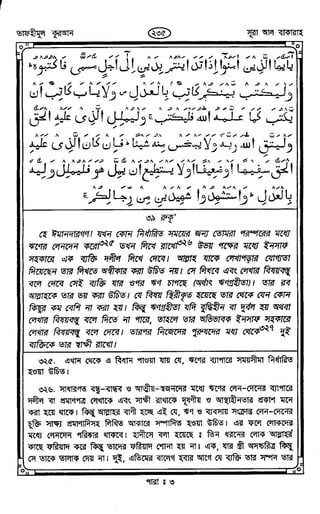 তাফহীমুল কুরআন
২৩৫
সূরা আল বাকারাহ
يَٰٓأَيُّهَا الَّذِينَ آمَنُوٓا إِذَا تَدَايَنتُم بِدَيْنٍ إِلَىٰٓ أَجَلٍ مُّسَمًّى فَاكْتُبُوهُ ۚ
وَلْيَكْتُب بَّيْنَكُمْ كَاتِبٌ بِالْعَدْلِ ۚ وَلَا يَأْبَ كَاتِبٌ أَن
يَكْتُبَ كَمَا عَلَّمَهُ اللَّهُ فَلْيَكْتُبْ ۚ وَلْيُمْلِلِ الَّذِي عَلَيْهِ الْحَقُّ
وَلْيَتَّقِ اللَّهَ رَبَّهُ وَلَا يَبْخَسْ مِنْهُ شَيْئًا ۚ فَإِن كَانَ الَّذِي عَلَيْهِ
الْحَقُّ سَفِيهًا أَوْ ضَعِيفًا أَوْ لَا يَسْتَطِيعُ أَن يُمِلَّ هُوَ فَلْيُمْلِلْ وَلِيُّهُ
بِالْعَدْلِ ۚ وَاسْتَشْهِدُوا شَهِيدَيْنِ مِن رِّجَالِكُمْ ۚ
৩৯ রুকূ'
হে ঈমানদারগণ! যখন কোন নির্ধারিত সময়ের জন্য তোমরা পরস্পরের মধ্যে
ঋণের লেনদেন করো৩২৫ তখন লিখে রাখো৩২৬ উভয় পক্ষের মধ্যে ইনসাফ
সহকারে এক ব্যক্তি দলীল লিখে দেবে। আল্লাহ যাকে লেখাপড়ার যোগ্যতা
দিয়েছেন তার লিখতে অস্বীকার করা উচিত নয়। সে লিখবে এবং লেখার বিষয়বস্তু
বলে দেবে সেই ব্যক্তি যার ওপর ঋণ চাপছে (অর্থাৎ ঋণগ্রহীতা)। তার রব
আল্লাহকে তার ভয় করা উচিত। যে বিষয় স্থিরীকৃত হয়েছে তার থেকে যেন কোন
কিছুর কম বেশি না করা হয়। কিন্তু ঋণগ্রহীতা যদি বুদ্ধিহীন বা দুর্বল হয় অথবা
লেখার বিষয়বস্তু বলে দিতে না পারে, তাহলে তার অভিভাবক ইনসাফ সহকারে
লেখার বিষয়বস্তু বলে দেবে। তারপর নিজেদের পুরুষদের মধ্য থেকে৩২৭ দুই
ব্যক্তিকে তার স্বাক্ষী রাখো।
৩২৫. এখান থেকে এ বিধান পাওয়া যায় যে, ঋণের ব্যাপারে সময়সীমা নির্ধারিত
হওয়া উচিত।
৩২৬. সাধারণত বন্ধু-বান্ধব ও আত্মীয়-স্বজনদের মধ্যে ঋণের লেন-দেনের ব্যাপারে
দলীল বা প্রমাণপত্র লেখাকে এবং সাক্ষী রাখাকে দূষণীয় ও আস্থাহীনতার প্রকাশ মনে
করা হয়ে থাকে। কিন্তু আল্লাহর বাণী হচ্ছে এই যে, ঋণ ও ব্যবসায় সংক্রান্ত লেন-দেনের
চুক্তি সাক্ষ্য প্রমাণাদিসহ লিখিত আকারে সম্পাদিত হওয়া উচিত। এর ফলে লোকদের
মধ্যে লেনদেন পরিষ্কার থাকবে। হাদীসে বলা হয়েছে ঃ তিন ধরনের লোক আল্লাহর
কাছে ফরিয়াদ করে কিন্তু তাদের ফরিয়াদ শোনা হয় না। এক, যার স্ত্রী অসচ্চরিত্র কিন্তু
সে তাকে তালাক দেয় না। দুই, এতিমের বালেগ হবার আগে যে ব্যক্তি তার সম্পদ তার
পারা ঃ ৩